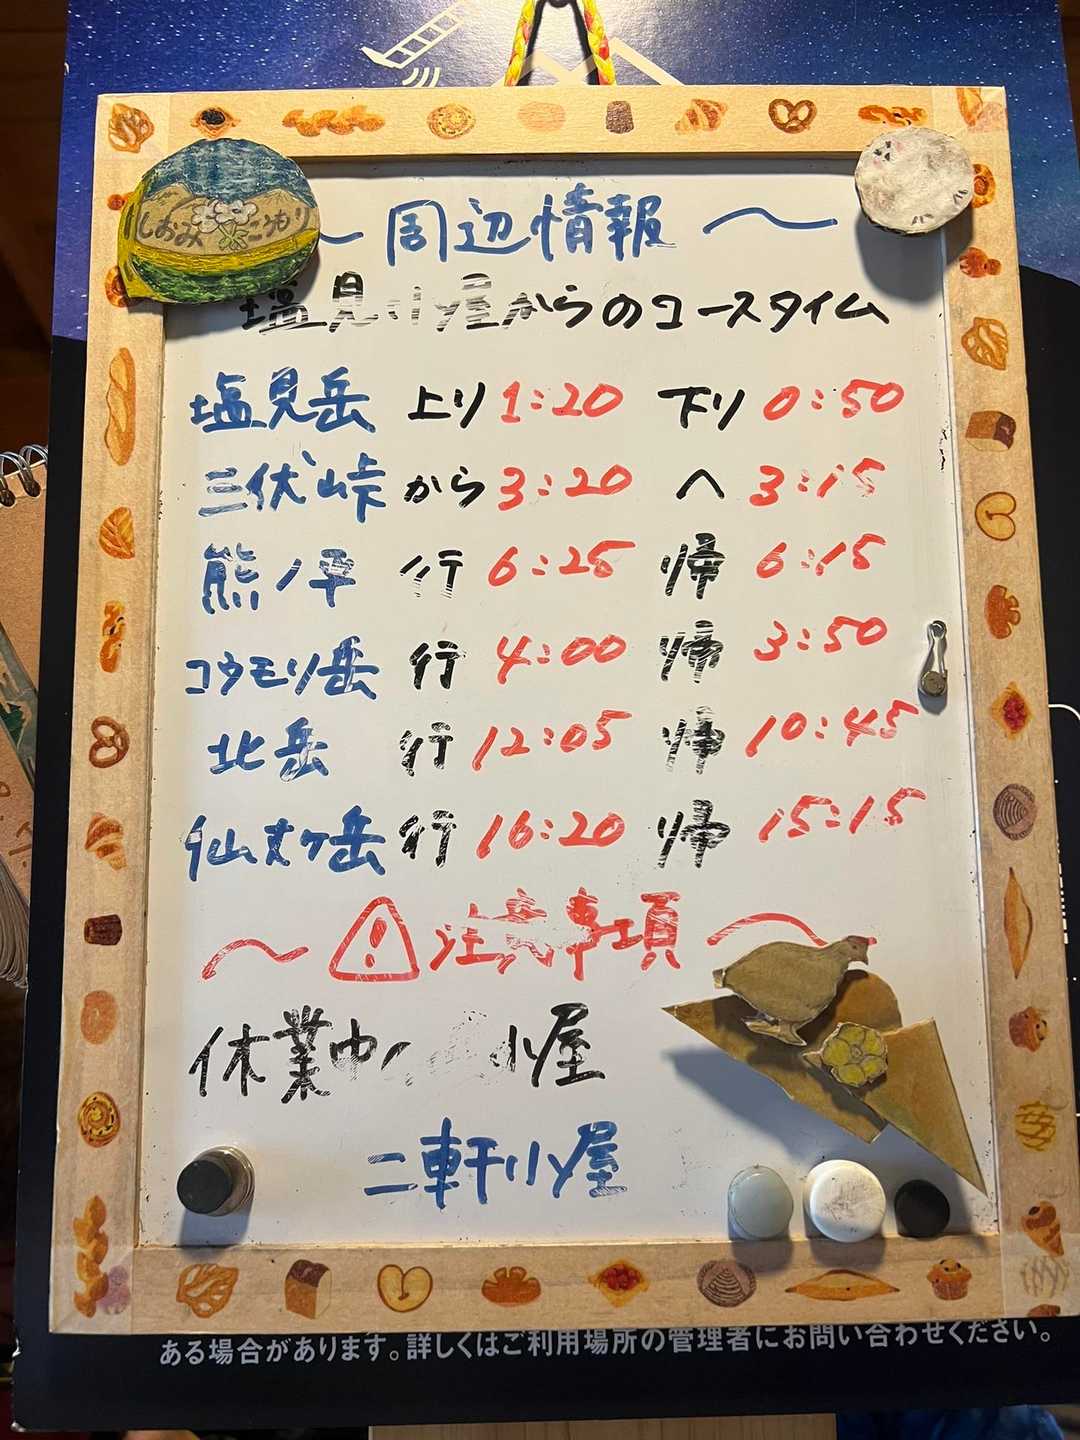 しおみ こうもり
～ 周辺情報 ～
塩見小屋からのコースタイム
塩見岳 上り 1:20 下り 0:50
三伏峠 から 3:20 へ 3:15
熊ノ平 行 6:25 帰 6:15
コウモリ岳 行 4:00 帰 3:50
北岳 行 12:05 帰 10:45
仙丈ヶ岳 行 16:20 帰 15:15
～ ⚠ 注意事項 ～
休業中 小屋
二軒小屋
ある場合があります。詳しくはご利用場所の管理者にお問い合わせください。